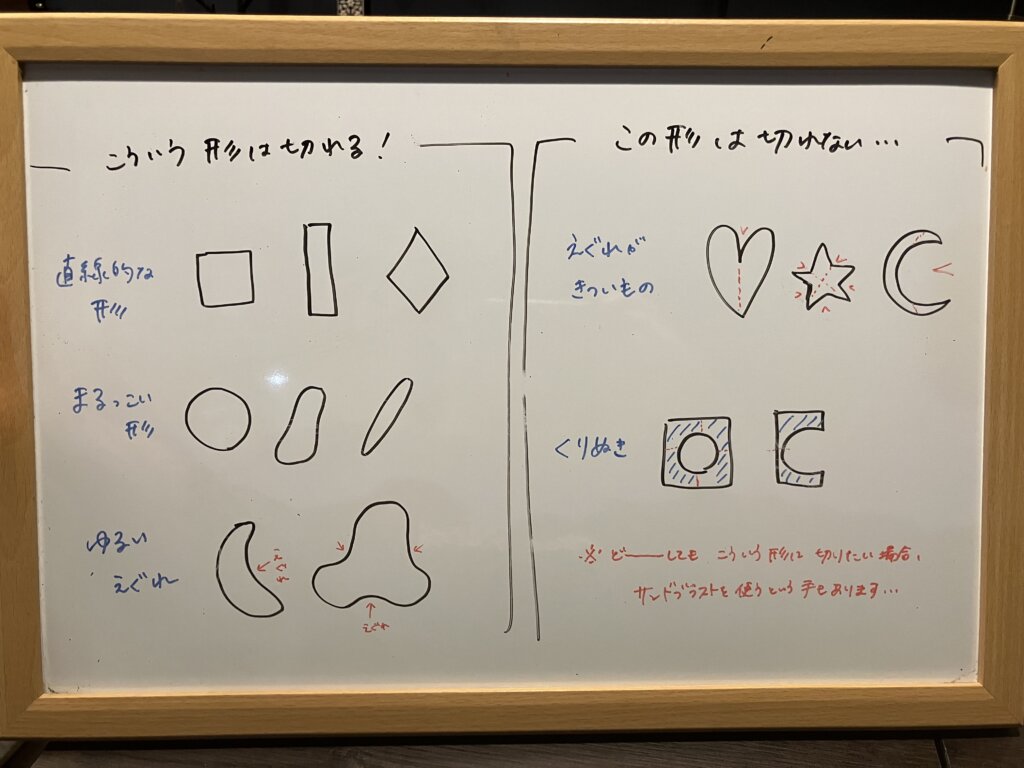 こういう形は切れる!
直線的な
形
まるっこい
形
ゆるい
えぐれ
えぐれ
えぐれ
この形は切れない…
えぐれが
きついもの
くりぬき
※どーーしても こういう形に切りたい場合、
サンドブラストを使うという手もあります…